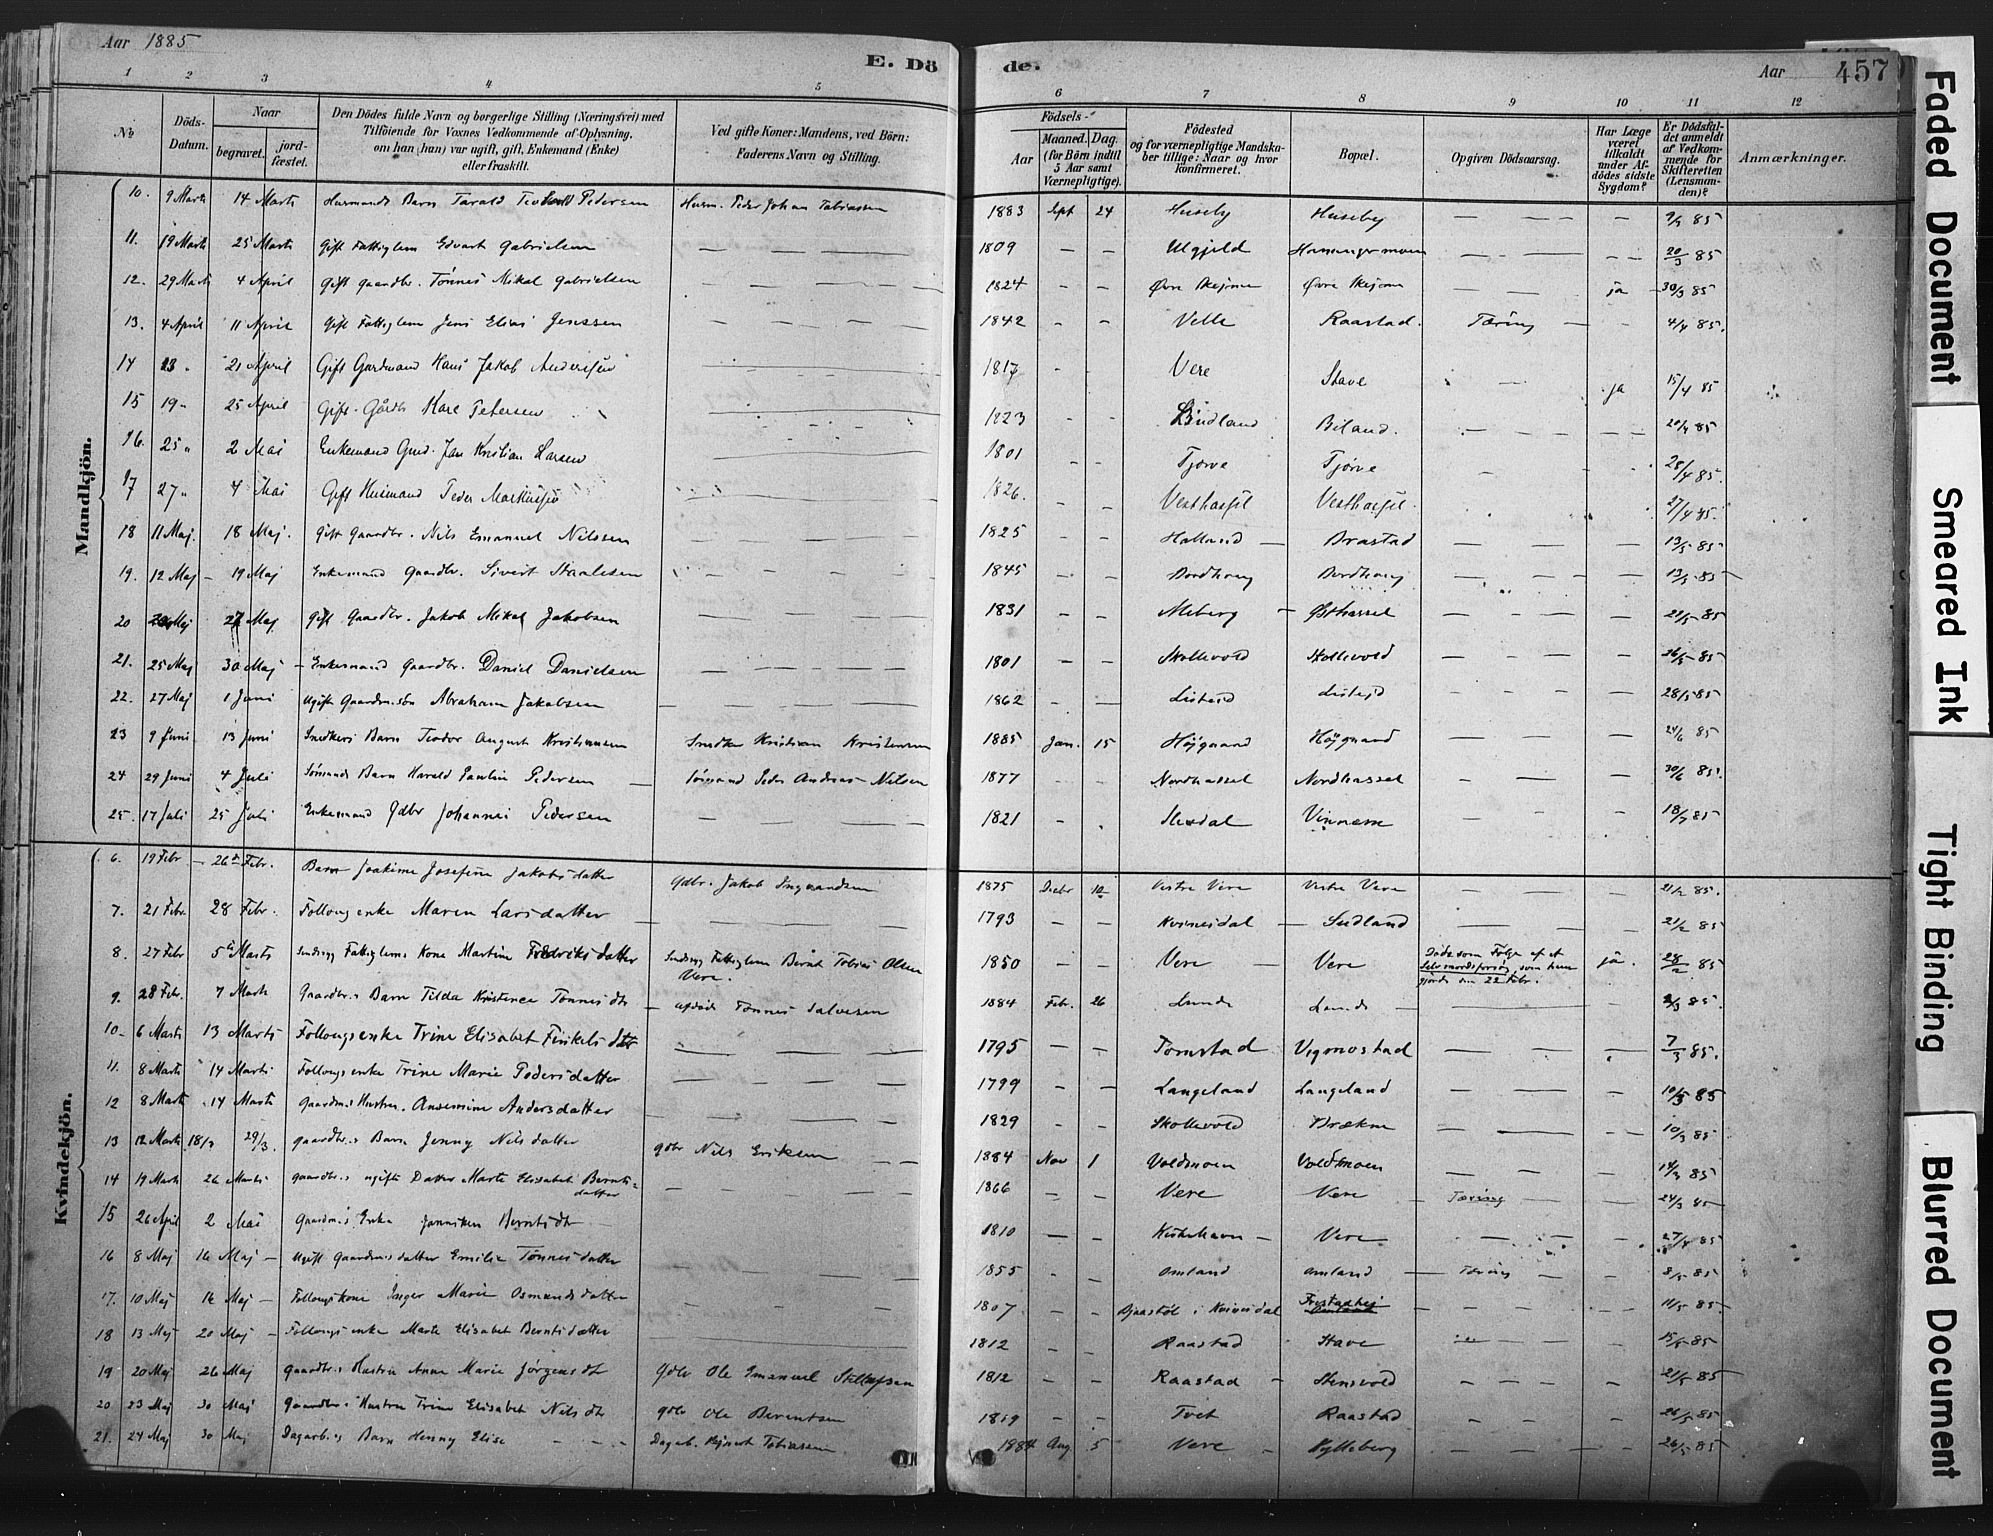 Aar 1885 E. Dö
de. Aar 457
1 2 3 4 5 6 7 8 9 10 11 12
No
Döds-Datum.
Naar begravet. jordfæstet.
Den Dödes fulde Navn og borgerlige Stilling (Næringsvei) med
Tilföiende for Voxnes Vedkommende af Oplysning,
om han (hun) var ugift, gift, Enkemand (Enke)
eller fraskilt.
Ved gifte Koner: Mandens, ved Börn:
Faderens Navn og Stilling.
Födsels-
Aar
Maaned. Dag.
(for Börn indtil
5 Aar samt
Værnepligtige).
Födested
og for værnepligtige Mandska-
ber tillige: Naar og hvor
konfirmeret.
Bopæl.
Opgiven Dödsaarsag.
Har Læge
været
tilkaldt
under Af-
dödes sidste
Sygdom?
Er Dödsfal-
det anmeldt
af Vedkom-
mende for
Skifteretten
(Lensman-
den)?
Anmærkninger.
Mandkjön.
10. 9 Marts 14 Marts Husmands Barn Tarald Pedersen Husm. Peder Johan Tobiassen 1883 Sept 24 Huseby Huseby — — — 9/3 85
11. 19 Marts 25 Marts Gift Fattiglem Edvart Gabrielsen — — 1809 — — Ulgjeld — — 20/3 85
12. 29 Marts 4 April Gift Gaardbr. Tønnes Mikal Gabrielsen — — 1824 — — Øvre Øvre ja 30/3 85
13. 4 April 11 April Gift Fattiglem Jens Elias Jenssen — — 1842 — — Velle Raastad. Tæring — — 4/4 85.
14 13 " 21 April Gift Gardmand Hans Jakob Andersen — 1817 - - Vere Stave — ja 15/4 85
15 19 " 25 April Gift. Gårdbr Karl Petersen — 1823 - - Lindland Biland. — — 20/4 85
16. 25 " 2 Mai Enkemand Gmd. Jan Kristian Larsen — 1801 - - Tjørve Tjørve - - 28/4 85.
17 27 " 4 Mai Gift Husmand Peder Markussen — 1826. - - Vesthassel Vesthassel. — — 27/4 85.
18 11 Maj. 18 Maj. Gift Gaardbr. Nils Emanuel Nilssen — — 1825 - - Holland — Brastad — — 13/5 85
19. 12 Maj — 19 Maj Enkemand Gaardbr. Sivert Staalesen — — 1845 - - Bordhaug Bordhaug — — 13/5 85
20 Maj 27 Maj Gift Gaardbr. Jakob Mikal Jakobsen — — 1831 - - Meberg — Østhassel — — 21/5 85
21. 25 Maj 30 Maj — Enkemand Gaardbr. Daniel Danielsen — — 1801 - - Skollevold Skollevold — — 26/5 85
22. 27 Maj 1 Juni Ugift Gaardm.søn Abraham Jakobsen — — 1862 — — Listeid Listeid — — 28/5 85
23 9 Juni 13 Juni Snedkers Barn Teodor August Kristiansen Snedker Kristian Kristensen 1885 Jan. 15 Højgaard Højgaard — — 24/6 85
24 29 Juni 4 Juli Sømands Barn Harald Paulin Pedersen — Sømand Peder Andreas Nilsen 1877 - - Nordhassel Nordhassel — — 30/6 85.
25. 17 Juli 25 Juli Enkemand Gdbr Johannes Pedersen — — 1821 - - Slexdal — — 18/7 85
Kvindekjön.
6. 19 Febr — 26 Febr. Barn Joakime Josefine Jakobsdatter Gdbr. Jakob Ingvardsen 1875 Decbr 10 Vestre Vere Vestre Vere — — — 21/2 85.
7. 21 Febr 28 Febr. Follougsenke Maren Larsdatter — — 1793 — — Kvinesdal — Sudland — — 21/2 85
8. 27 Febr 5te Marts Sindssyg Fattiglems Kone Martine Fredriksdatter Sindssyg Fattiglem Bernt Tobias Olsen
Vere. 1850 — — Vere — Vere Døde som Følge af et
Selvmordsforsøg, som hun
gjorde den 22 Febr. ja. 28/2 85
9. 28 Febr. 7 Marts Gaardbr.s Barn Tilda Kristence Tønnesdtr — afdøde Tønnes Salvesen 1884 Febr. 26 Lunde Lunde — — 2/3 85.
10. 6 Marts 13 Marts Follougsenke Trine Elisabet Finkelsdtr — — 1795 — — Tomstad Vigmostad — — 7/3 85.
11. 8 Marts 14 Marts Follougsenke Trine Marie Pedersdatter — — 1799 — — Langeland Langeland — — 10/3 85
12 8 Marts 14 Marts Gaardm.s Hustru. Ansemine Andersdatter — — 1829 — — Skollevold Brækne — — 10/3 85
13 12 Marts 18/3 29/3. Gaardbr.s Barn Jenny Nilsdatter Gdbr Nils Eriksen — — 1884 Nov 1 Voldmoen Voldmoen — — 14/3 85
14 19 Marts 26 Marts Gaardbr.s ugifte Datter Marte Elisabet Bernts-
datter — — 1866 — — Vere Vere — Tæring — — 24/3 85
15 26 April 2 Mai Gaardm.s Enke Janniken Berntsdtr — 1810 — — — Vere — — 27/4 85
16 8 Maj 16 Maj — Ugift Gaardm.s datter Emilie Tønnesdatter — — 1855 — — Omland Omland — Tæring — — 8/5 85
17. 10 Maj 16 Maj — Follougskone Inger Marie Osmundsdatter — — 1807 — — Bjaastøl i Kvinesdal — — 11/5 85.
18 13 Maj 20 Maj — Follougsenke Marte Elisabet Berntsdatter — 1812 — — Raastad Stave — — 15/5 85
19 20 Maj 26 Maj Gaardbr.s Hustru Anne Marie Jørgensdtr Gdbr Ole Emanuel 1812 — — Raastad — Stensvold — — 21/5 85
20 23 Maj 30 Maj Gaardbr.s Hustru Trine Elisabet Nilsdtr Gdbr Ole Berentsen 1859 — — Tvet Raastad — — 26/5 85
21. 24 Maj 30 Maj Dagarb.s Barn Henny Elise — — — Dagarb. Tobiassen 1884 Aug 5 Vere — — — 26/5 85
Faded Document
Smeared Ink
Tight Binding
Blurred Document